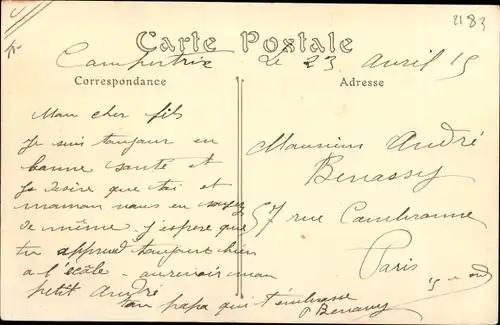 2183
Carte Postale
Campertrix Le 23 Avril 15
Correspondance
Adresse
Mon cher fils
Je suis toujour en
bonne santé et
Je désire que toi et
maman vous en soyez
de même. J'espère que
tu apprend toujours bien
a l'école - aurevoir mon
petit André
ton papa qui t'embrasse
P Benassy
Monsieur André
Benassy
57 rue Cambronne
Paris